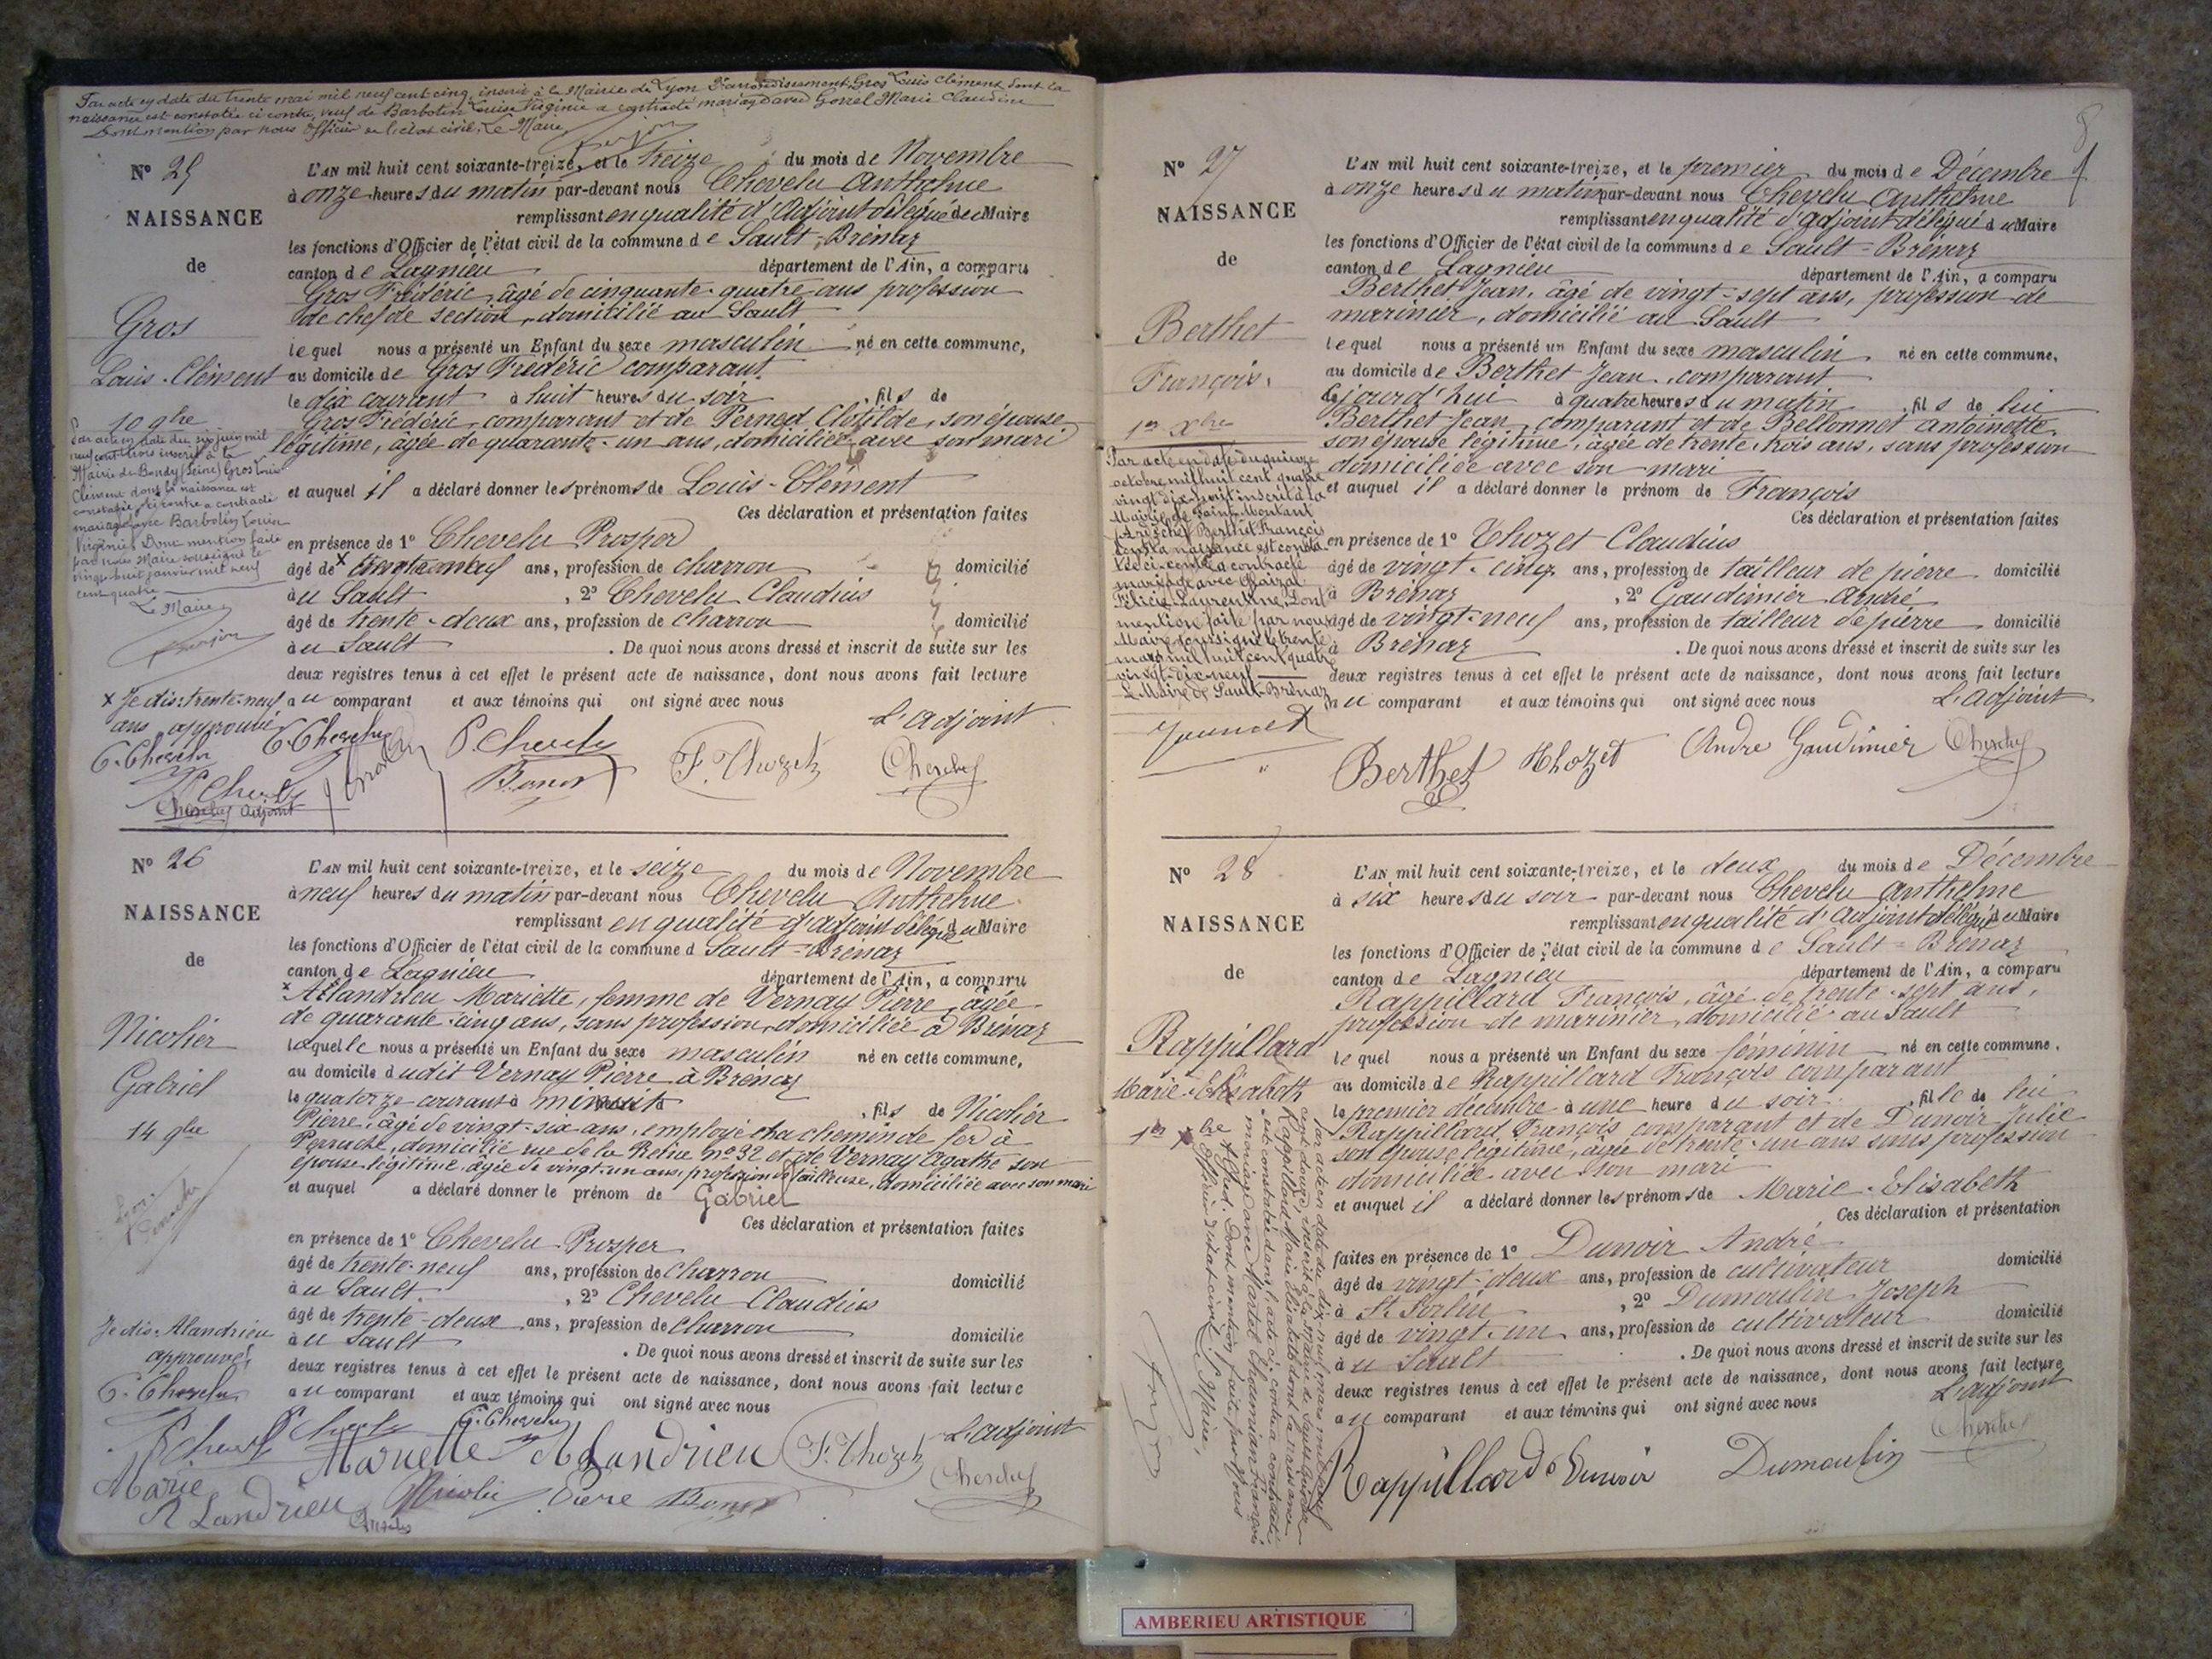 Par acte en date du trente mai mil neuf cent cinq, inscrit à la Mairie de Lyon arrondissement Gros Louis Clément dont la
naissance est constatée ci contre, veuf de Barbotin Louise Virginie a contracté mariage avec Gorrel Marie Claudine
Dont mention par nous Officier de l'état civil, Le Maire
N° 25
NAISSANCE
de
Gros
Louis-Clément
10 9bre
Par acte en date du six juin mil
neuf cent trois inscrit à la
Mairie de Bondy (Seine) Gros Louis
Clément dont la naissance est
constatée ci contre a contracté
mariage avec Barbotin Louise
Virginie. Dont mention faite
par nous Maire soussigné le
vingt huit janvier mil neuf
cent quatre
Le Maire
x Je dis: trente-neuf
ans approuvé
C. Chevelu
P. Chevelu
L'AN mil huit cent soixante-treize, et le treize du mois de Novembre
à onze heures du matin par-devant nous Chevelu Anthelme
remplissant en qualité d'Adjoint délégué du Maire
les fonctions d'Officier de l'état civil de la commune de Sault-Brénaz
canton de Lagnieu département de l'Ain, a comparu
Gros Frédéric, âgé de cinquante-quatre-ans profession
de chef de section, domicilié au Sault
lequel nous a présenté un Enfant du sexe masculin né en cette commune,
au domicile de Gros Frédéric comparant
le dix courant à huit heures du soir, fils de
Gros Frédéric, comparant et de Perned Clotilde, son épouse
légitime, âgée de quarante-un ans, domiciliée avec son mari
et auquel il a déclaré donner les prénoms de Louis-Clément
Ces déclaration et présentation faites
en présence de 1° Chevelu Prosper
âgé de x trente neuf ans, profession de charron domicilié
au Sault, 2° Chevelu Claudius
âgé de trente-deux ans, profession de charron domicilié
au Sault. De quoi nous avons dressé et inscrit de suite sur les
deux registres tenus à cet effet le présent acte de naissance, dont nous avons fait lecture
au comparant et aux témoins qui ont signé avec nous
L'adjoint
C. Chevelu P. Chevelu F. Thozet Chevelu
N° 26
NAISSANCE
de
Nicolier
Gabriel
14 9bre
Je dis: Alandrieu
approuvé
C. Chevelu
L'AN mil huit cent soixante-treize, et le seize du mois de Novembre
à neuf heures du matin par-devant nous Chevelu Anthelme
remplissant en qualité d'adjoint délégué du Maire
les fonctions d'Officier de l'état civil de la commune d Sault-Brénaz
canton de Lagnieu département de l'Ain, a comparu
x Allandrieu Mariette, femme de Vernay Pierre, âgée
de quarante-cinq ans, sans profession, domiciliée à Brénaz
laquelle nous a présenté un Enfant du sexe masculin né en cette commune,
au domicile dudit Vernay Pierre à Brénaz
le quatorze courant à minuit, fils de Nicolier
Pierre, âgé de vingt-six ans, employé au chemin de fer à
Perrache, domicilié rue de la Reine n° 32 et de Vernay Agathe son
épouse légitime, âgée de vingt-un ans, profession de tailleuse, domiciliée avec son mari
et auquel a déclaré donner le prénom de Gabriel
Ces déclaration et présentation faites
en présence de 1° Chevelu Prosper
âgé de trente-neuf ans, profession de charron domicilié
au Sault, 2° Chevelu Claudius
âgé de trente-deux ans, profession de charron domicilié
au Sault. De quoi nous avons dressé et inscrit de suite sur les
deux registres tenus à cet effet le présent acte de naissance, dont nous avons fait lecture
au comparant et aux témoins qui ont signé avec nous
L'adjoint
C. Chevelu
F. Thozet Chevelu
8
N° 27
NAISSANCE
de
Berthet
François
1er Xbre
Par acte en date du quinze
octobre mil huit cent quatre
vingt dix-huit inscrit à la
Mairie de Saint-Montant
(Ardèche) Berthet François
dont la naissance est consta-
tée ci-contre a contracté
mariage avec
Félicie Laurentine, Dont
mention faite par nous
Maire soussigné le trente
mars mil huit cent quatre
vingt-dix-neuf
Le Maire de Sault-Brénaz
L'AN mil huit cent soixante-treize, et le premier du mois de Décembre
à onze heures du matin par-devant nous Chevelu Anthelme
remplissant en qualité d'adjoint délégué du Maire
les fonctions d'Officier de l'état civil de la commune de Sault-Brénaz
canton de Lagnieu département de l'Ain, a comparu
Berthet Jean, âgé de vingt-sept ans, profession de
marinier, domicilié au Sault
lequel nous a présenté un Enfant du sexe masculin né en cette commune,
au domicile de Berthet Jean, comparant
aujourd'hui à quatre heures du matin, fils de lui
Berthet Jean, comparant et de Bellonnet Antoinette
son épouse légitime, âgée de trente-trois ans, sans profession
domiciliée avec son mari
et auquel il a déclaré donner le prénom de François
Ces déclaration et présentation faites
en présence de 1° Thozet Claudius
âgé de vingt-cinq ans, profession de tailleur de pierre domicilié
à Brénaz, 2° Gaudinier André
âgé de vingt-neuf ans, profession de tailleur de pierre domicilié
à Brénaz. De quoi nous avons dressé et inscrit de suite sur les
deux registres tenus à cet effet le présent acte de naissance, dont nous avons fait lecture
au comparant et aux témoins qui ont signé avec nous
L'adjoint
Berthet Thozet Andre Gaudinier Chevelu
N° 28
NAISSANCE
de
Rappillard
Marie-Elisabeth
1er Xbre
Par acte en date du dix neuf mars mil neuf
cent douze, inscrit à la mairie de Sault-Brénaz
Rappillard Marie Elisabeth dont la naissance
est constatée dans l'acte ci-contre a contracté
mariage avec Martel Chaumian François
Alfred. Dont mention faite par Nous
Officier d'état civil, Le Maire,
L'AN mil huit cent soixante-treize, et le deux du mois de Décembre
à six heures du soir par-devant nous Chevelu Anthelme
remplissant en qualité d'adjoint délégué du Maire
les fonctions d'Officier de l'état civil de la commune de Sault-Brénaz
canton de Lagnieu département de l'Ain, a comparu
Rappillard François, âgé de trente-sept ans,
profession de marinier, domicilié au Sault
lequel nous a présenté un Enfant du sexe féminin né en cette commune,
au domicile de Rappillard François comparant
le premier décembre à une heure du soir, fille de lui
Rappillard François comparant et de Dunoir Julie
son épouse légitime, âgée de trente-un ans sans profession
domiciliée avec son mari
et auquel il a déclaré donner les prénoms de Marie-Elisabeth
Ces déclaration et présentation
faites en présence de 1° Dunoir André
âgé de vingt-deux ans, profession de cultivateur domicilié
à St Sorlin, 2° Dumoulin Joseph
âgé de vingt-un ans, profession de cultivateur domicilié
au Sault. De quoi nous avons dressé et inscrit de suite sur les
deux registres tenus à cet effet le présent acte de naissance, dont nous avons fait lecture
au comparant et aux témoins qui ont signé avec nous
L'adjoint
Rappillard Dunoir Dumoulin Chevelu
AMBERIEU ARTISTIQUE